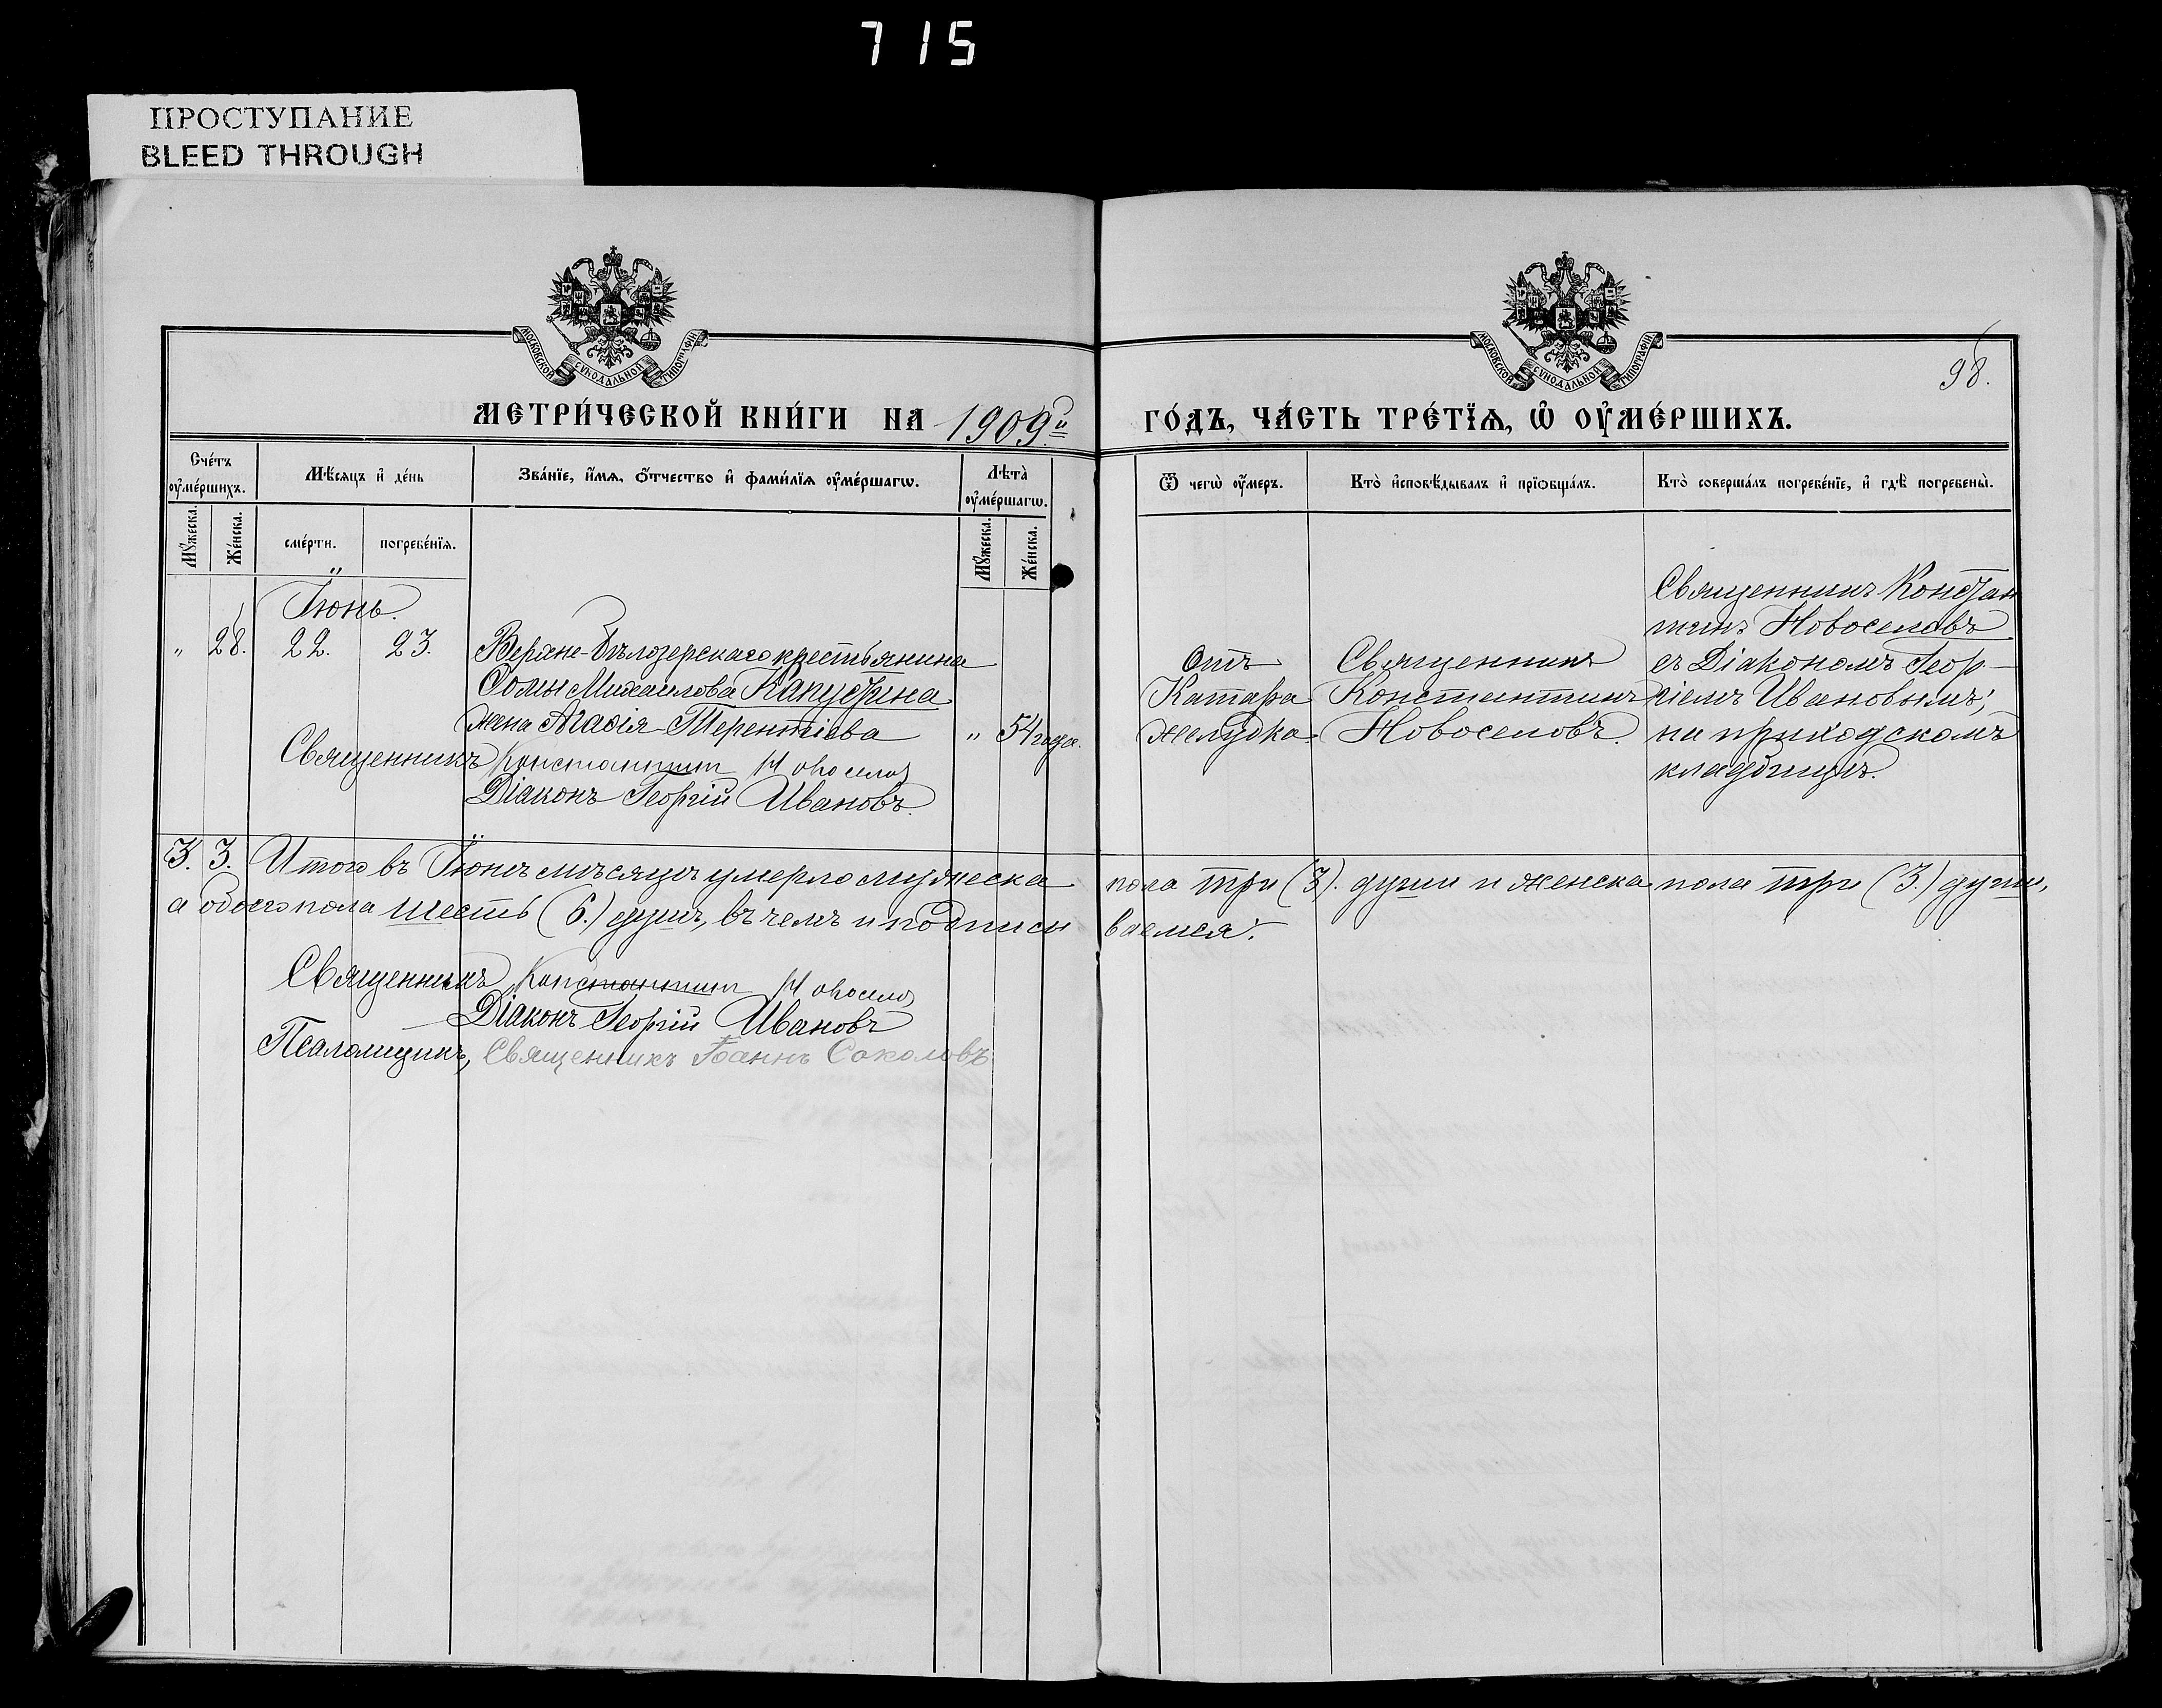 715
ПРОСТУПАНИЕ
BLEED THROUGH
МОСКОВСКОЙ СѴНОДАЛЬНОЙ ТИПОГРАФІИ
МОСКОВСКОЙ СѴНОДАЛЬНОЙ ТИПОГРАФІИ
98.
МЕТРИ́ЧЕСКОЙ КНИ́ГИ НА 1909й ГО́ДЪ, ЧА́СТЬ ТРЕ́ТЇѦ, Ѡ҆ ОУ҆МЕ́РШИХЪ.
Сче́тъ оу҆ме́ршихъ.
Мѣ́сяцъ и҆ де́нь
Зва́нїе, и҆́мѧ, ѻ҆́тчество и҆ фами́лїѧ оу҆ме́ршагѡ.
Лѣта̀ оу҆ме́ршагѡ.
Ѿ чегѡ̀ оу҆́меръ.
Кто̀ и҆сповѣ́дывалъ и҆ прїѻбща́лъ.
Кто̀ соверша́лъ погребе́нїе, и҆ гдѣ̀ погребены̀.
Му́жеска.
Же́нска.
сме́рти.
погребе́нїѧ.
Му́жеска.
Же́нска.
Іюнь.
" 28. 22. 23.
Верхне-Бѣлозерскаго крестьянина
Ѳомы Михаилова Капустина
жена Агаѳія Терентіева
" 54 года.
Отъ
Катара
желудка.
Священникъ
Константинъ
Новоселовъ.
Священникъ Констан
тинъ Новоселовъ
съ Діакономъ Геор-
гіемъ Ивановымъ;
на приходскомъ
кладбищѣ.
Священникъ Константин Новоселов
Діаконъ Георгій Ивановъ.
3. 3. Итого въ Іюнѣ мѣсяцѣ умерло мужеска пола три (3). души и женска пола три (3.) души,
а обоего пола шесть (6.) душъ, въ чемъ и подписы ваемся:
Священникъ Константин Новоселов
Діаконъ Георгій Ивановъ
Псаломщикъ, Священникъ Іоаннъ Соколовъ